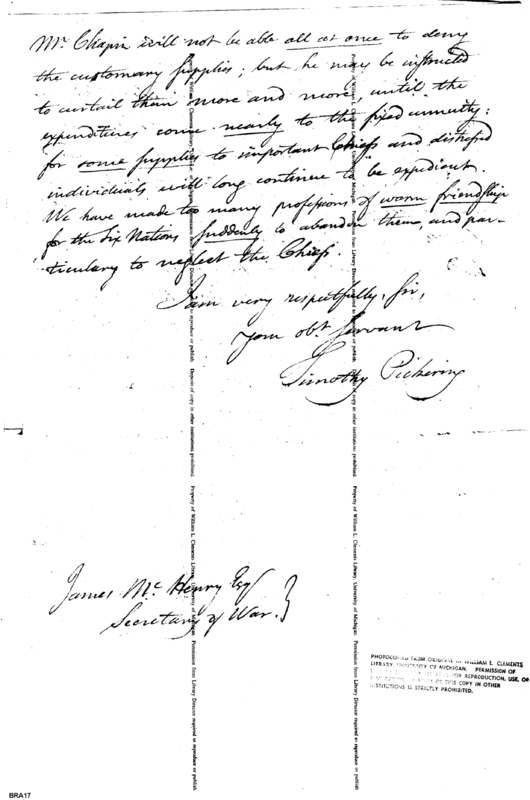 Mr. Chapin will not be able all at once to deny
the customary supplies; but he may be instructed
to curtail them more and more, until the
expenditures come nearly to the fixed annuity:
for some supplies to important Chiefs and distressed
individuals will long continue to be expedient.
We have made too many professions of warm friendship
for the Six Nations suddenly to abandon them, and par-
ticulary to neglect the Chiefs.
I am very respectfully, sir,
your obt. servant
Timothy Pickering
James McHenry Esq
Secretary of War.
Property of William L. Clements Library, University of Michigan. Permission from Library Director required to reproduce or publish. Deposit of copy in other institutions prohibited.
Property of William L. Clements Library, University of Michigan. Permission from Library Director required to reproduce or publish
PHOTOCOPIED FROM ORIGINAL IN WILLIAM L. CLEMENTS
LIBRARY, UNIVERSITY OF MICHIGAN. PERMISSION OF
FOR REPRODUCTION, USE, OR
OF THIS COPY IN OTHER
INSTITUTIONS IS STRICTLY PROHIBITED.
BRA17